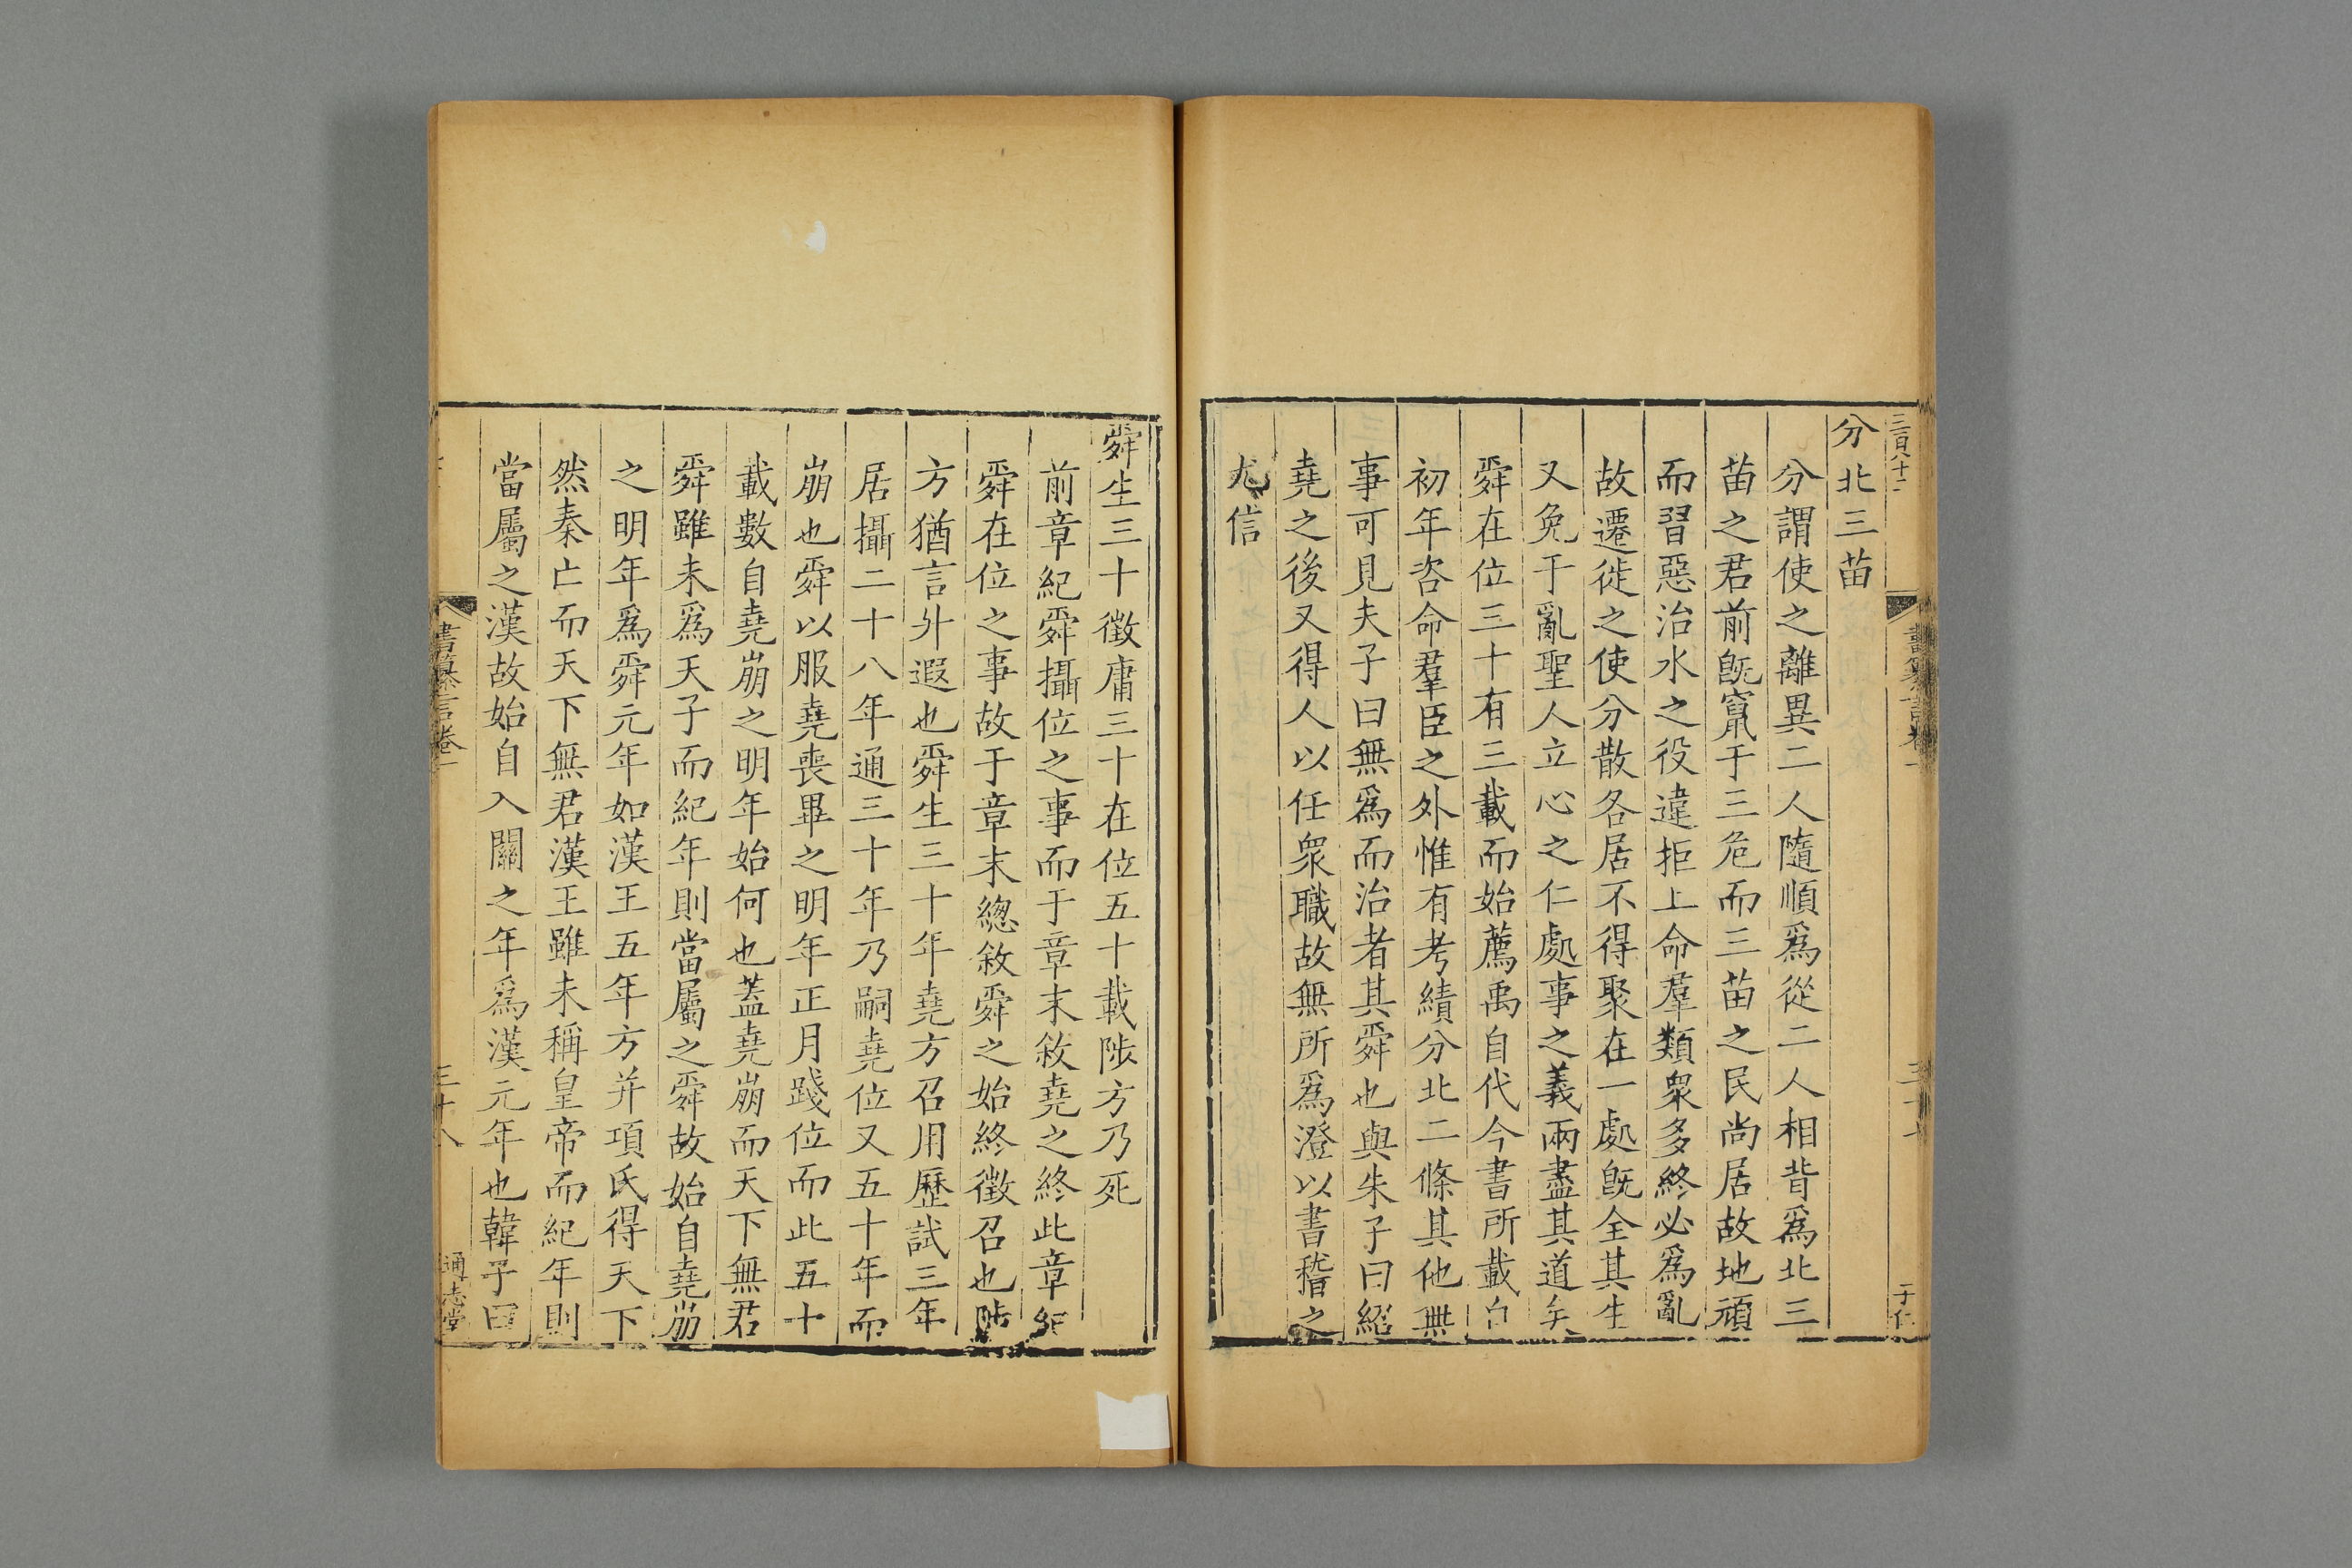 三百八十二
分北三苗
分謂使之離異二人隨順爲從二人相背爲北三
苗之君前旣竄于三危而三苗之民尚居故地頑
而習惡治水之役違拒上命羣類衆多終必爲亂
故遷徙之使分散各居不得聚在一處旣全其生
又免于亂聖人立心之仁處事之義兩盡其道矣
舜在位三十有三載而始薦禹自代今書所載自
初年咨命羣臣之外惟有考績分北二條其他無
事可見夫子曰無爲而治者其舜也與朱子曰紹
堯之後又得人以任衆職故無所爲澄以書稽之
尤信
舜生三十徵庸三十在位五十載陟方乃死
前章紀舜攝位之事而于章末敘堯之終此章紀
舜在位之事故于章末總敘舜之始終徵召也陟
方猶言升遐也舜生三十年堯方召用歷試三年
居攝二十八年通三十年乃嗣堯位又五十年而
崩也舜以服堯喪畢之明年正月踐位而此五十
載數自堯崩之明年始何也蓋堯崩而天下無君
舜雖未爲天子而紀年則當屬之舜故始自堯崩
之明年爲舜元年如漢王五年方并項氏得天下
然秦亡而天下無君漢王雖未稱皇帝而紀年則
當屬之漢故始自入關之年爲漢元年也韓子曰
書纂言卷一
三十八
通志堂